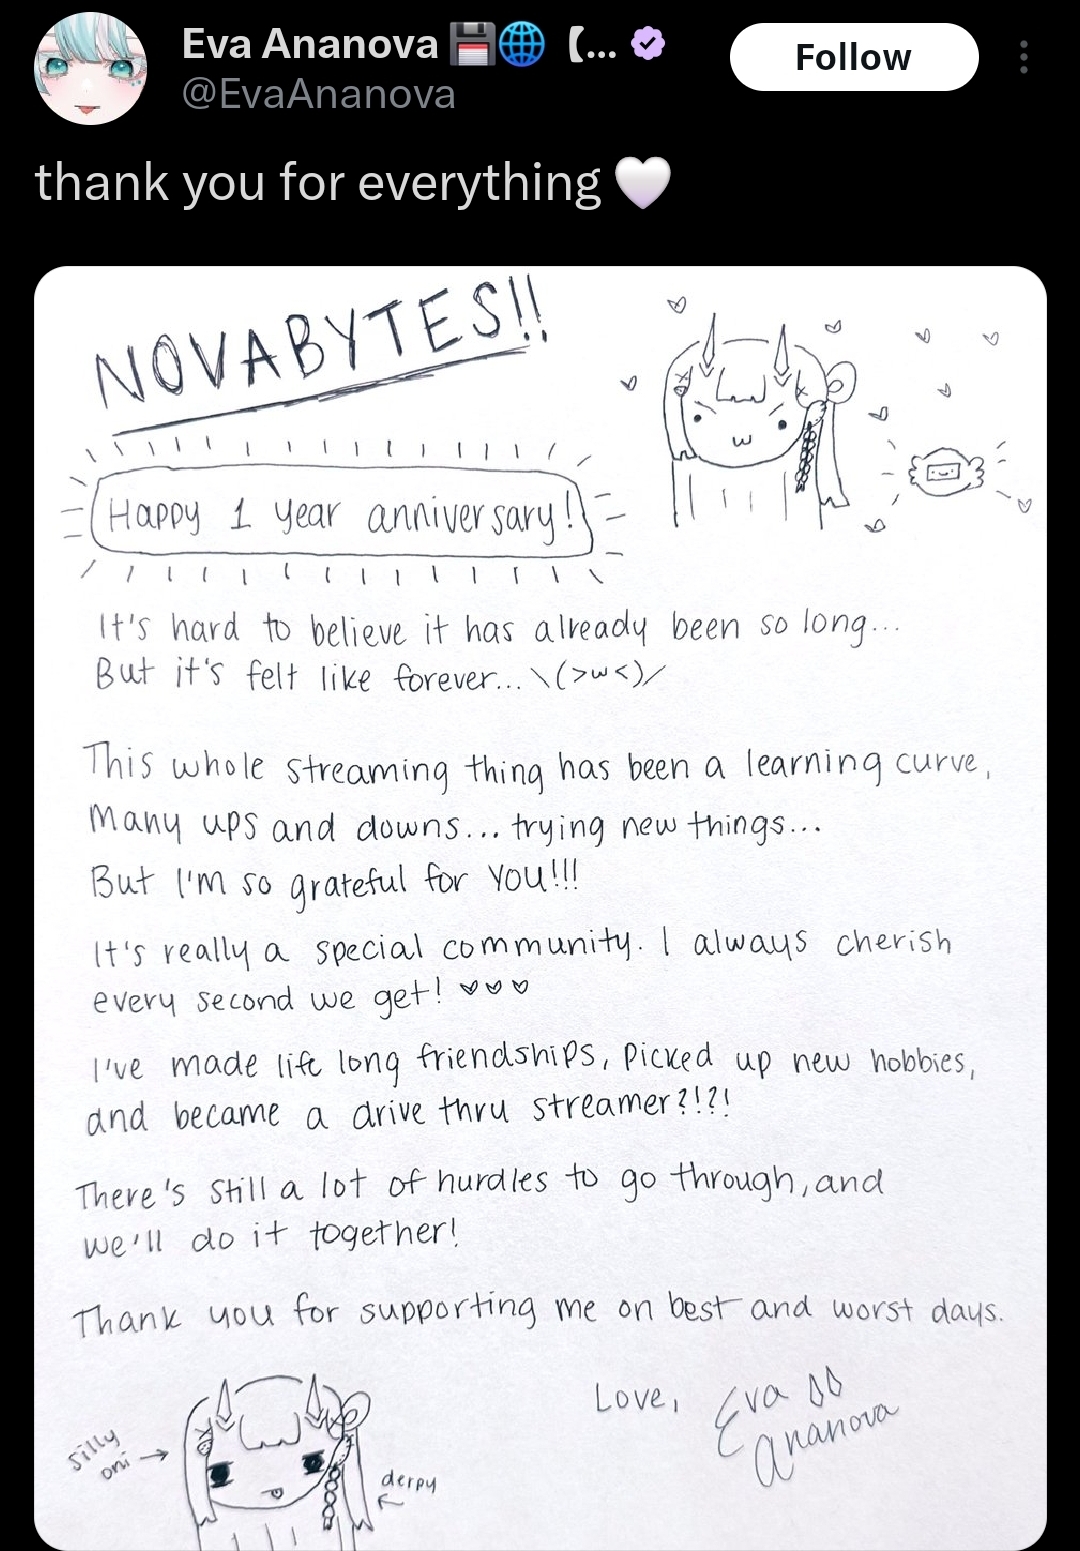 Eva Ananova 💾🌐 【...
@EvaAnanova
Follow
thank you for everything 🤍
NOVABYTES!!
Happy 1 year anniversary!
It's hard to believe it has already been so long...
But it's felt like forever... \(>w<)/
This whole streaming thing has been a learning curve,
Many ups and downs... trying new things...
But I'm so grateful for YOU!!!
It's really a special community. I always cherish
every second we get! ♡♡♡
I've made life long friendships, picked up new hobbies,
and became a drive thru streamer?!?!
There's still a lot of hurdles to go through, and
we'll do it together!
Thank you for supporting me on best and worst days.
Love, Eva
Ananova
silly
oni →
derpy
←